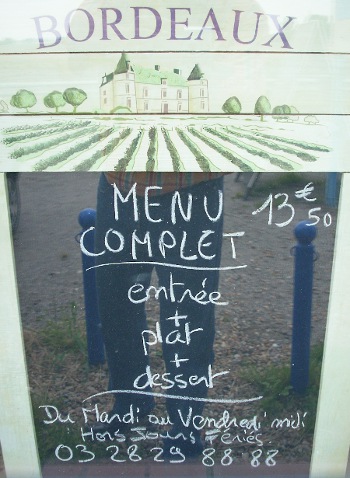 BORDEAUX
MENU 13€50
COMPLET
entrée
+
plat
+
dessert
Du Mardi au Vendredi midi
Hors Jours Fériés.
03 28 29 88 88